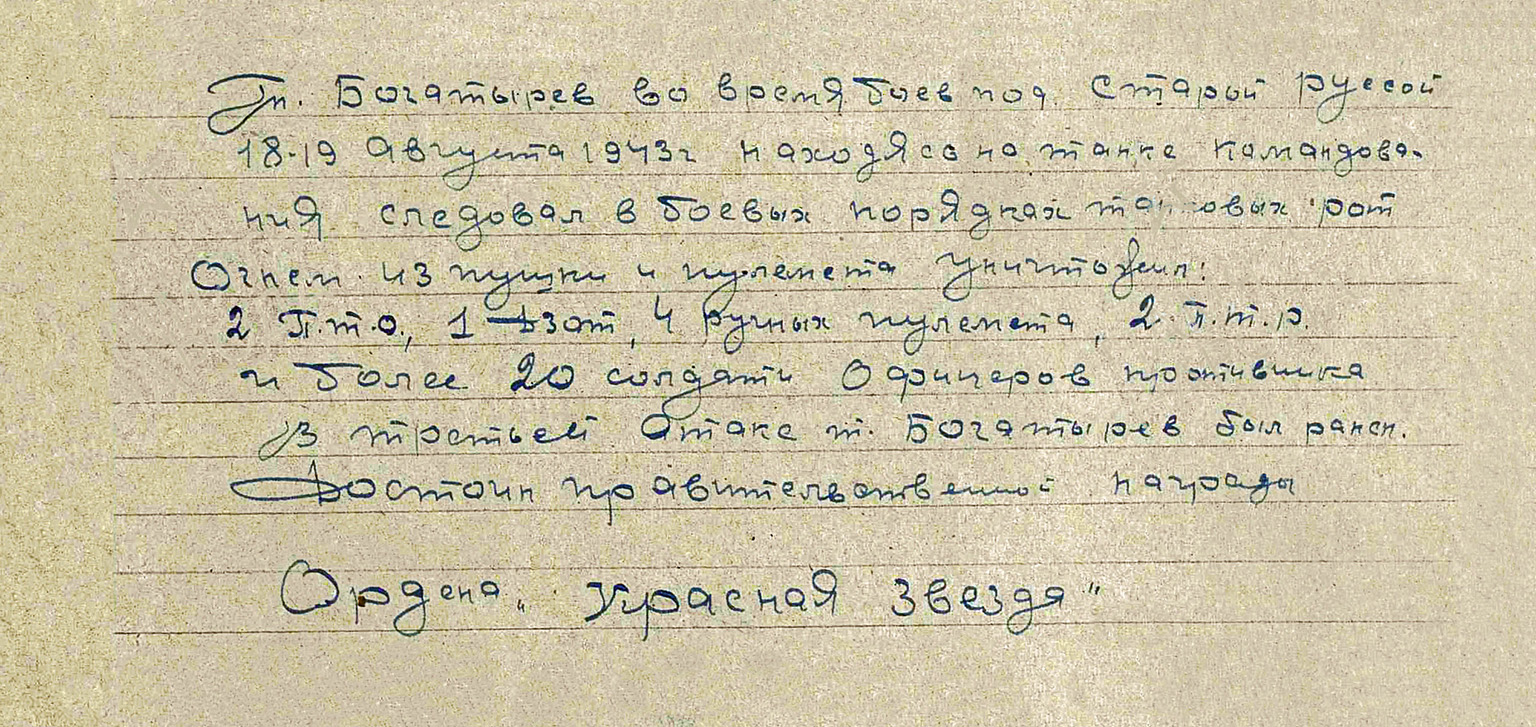 Тп. Богатырев во время боев под Старой руссой
18-19 Августа 1943г находясь на танке командова-
ния следовал в боевых порядках танковых рот
Огнем из пушки и пулемета уничтожил:
2 П.т.о., 1 Дзот, 4 ручных пулемета, 2 п.т.р.
и более 20 солдат и Офицеров противника
В третьей Атаке т. Богатырев был ранен.
Достоин правительственной награды
Ордена „Красная Звезда"